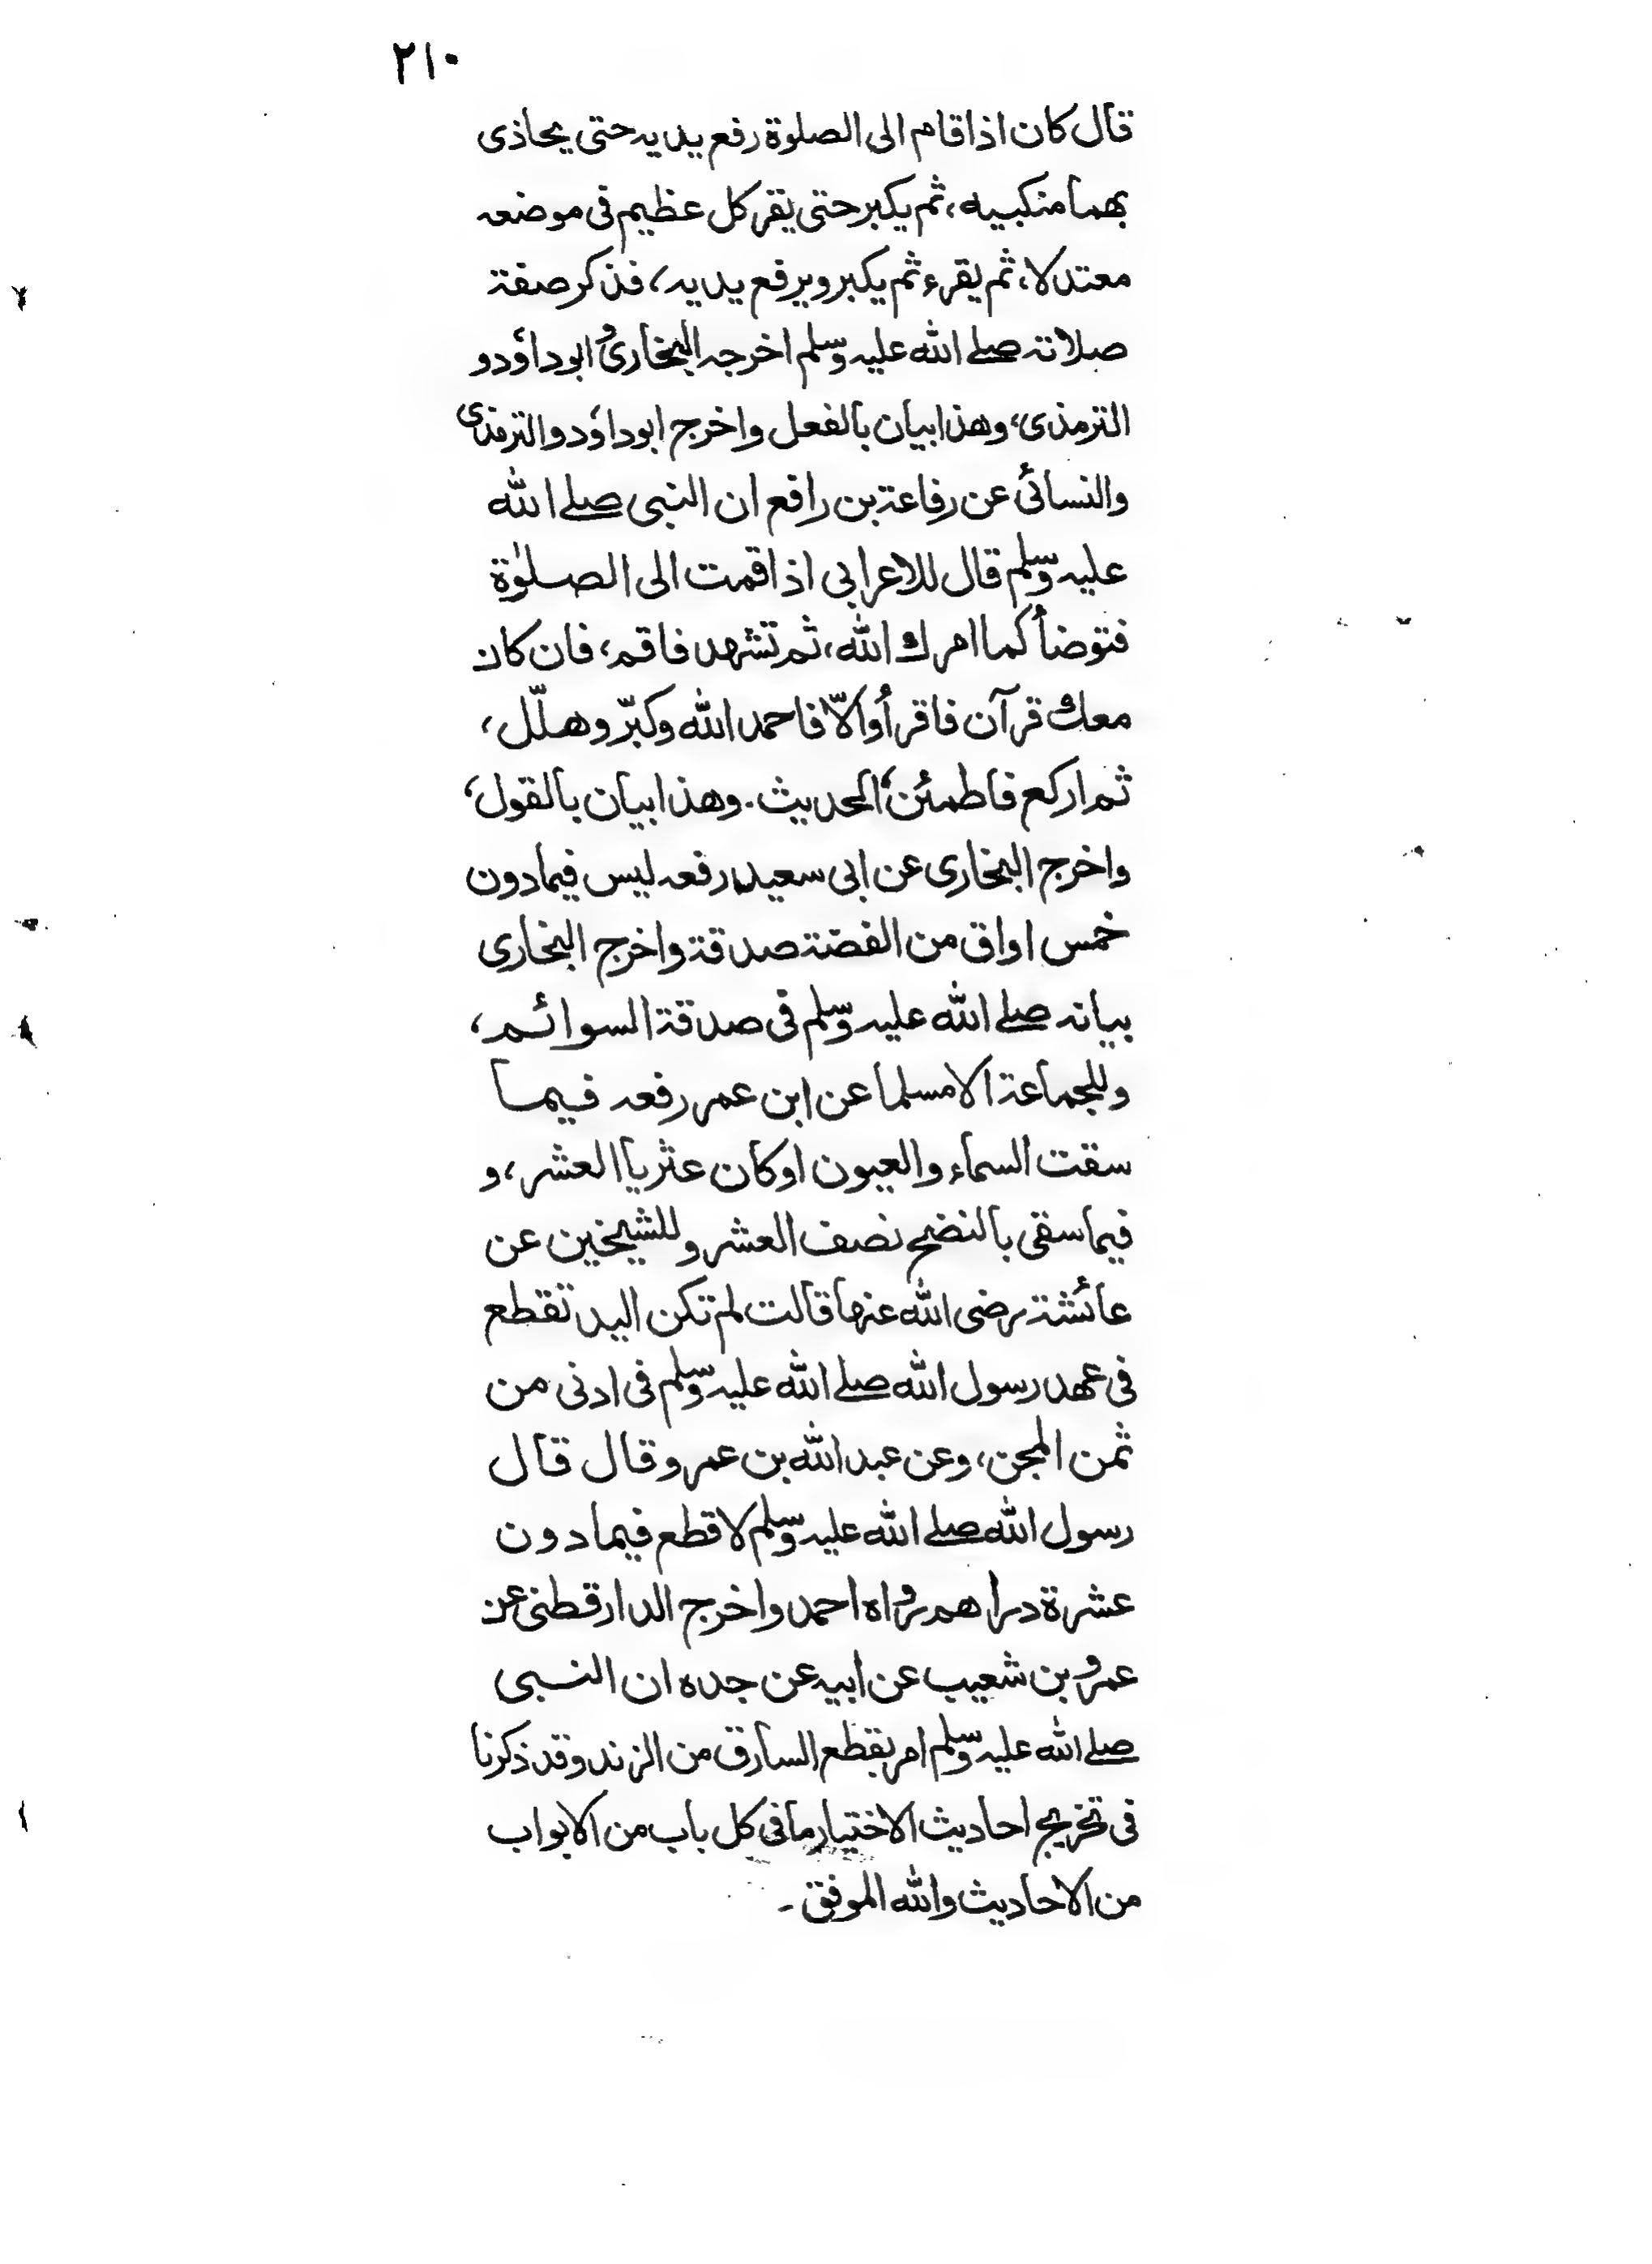 ٢١٠
قال كان اذا قام الى الصلوة رفع يديه حتى يحاذى
بهما منكبيه، ثم يكبر حتى يقر كل عظيم فى موضعه
معتدلا، ثم يقرء ثم يكبر ويرفع يديه، فذكر صفة
صلاته صلے الله عليه وسلم اخرجه البخارى و ابوداؤد و
الترمذى، وهذا بيان بالفعل واخرج ابوداؤد والترمذى
والنسائى عن رفاعة بن رافع ان النبى صلے الله
عليه وسلم قال للاعرابى اذا قمت الى الصلوٰة
فتوضأ كما امرك الله، ثم تشهد فاقم، فان كان
معك قرآن فاقرأ والّا فاحمد الله وكبّر وهلّل،
ثم اركع فاطمئن، الحديث. وهذا بيان بالقول،
واخرج البخارى عن ابى سعيد رفعه ليس فيما دون
خمس اواق من الفضة صدقة واخرج البخارى
بيانه صلے الله عليه وسلم فى صدقة السوائم،
وللجماعة الا مسلما عن ابن عمر رفعه فيما
سقت السماء والعيون اوكان عثريا العشر، و
فيما سقى بالنضح نصف العشر وللشيخين عن
عائشة رضى الله عنها قالت لم تكن اليد تقطع
فى عهد رسول الله صلے الله عليه وسلم فى ادنى من
ثمن المجن، وعن عبد الله بن عمرو قال قال
رسول الله صلے الله عليه وسلم لا قطع فيما دون
عشرة دراهم رواه احمد واخرج الدارقطنى عن
عمرو بن شعيب عن ابيه عن جده ان النبى
صلے الله عليه وسلم امر بقطع السارق من الزند وقد ذكرنا
فى تخريج احاديث الاختيار ما فى كل باب من الابواب
من الاحاديث والله الموفق ۔